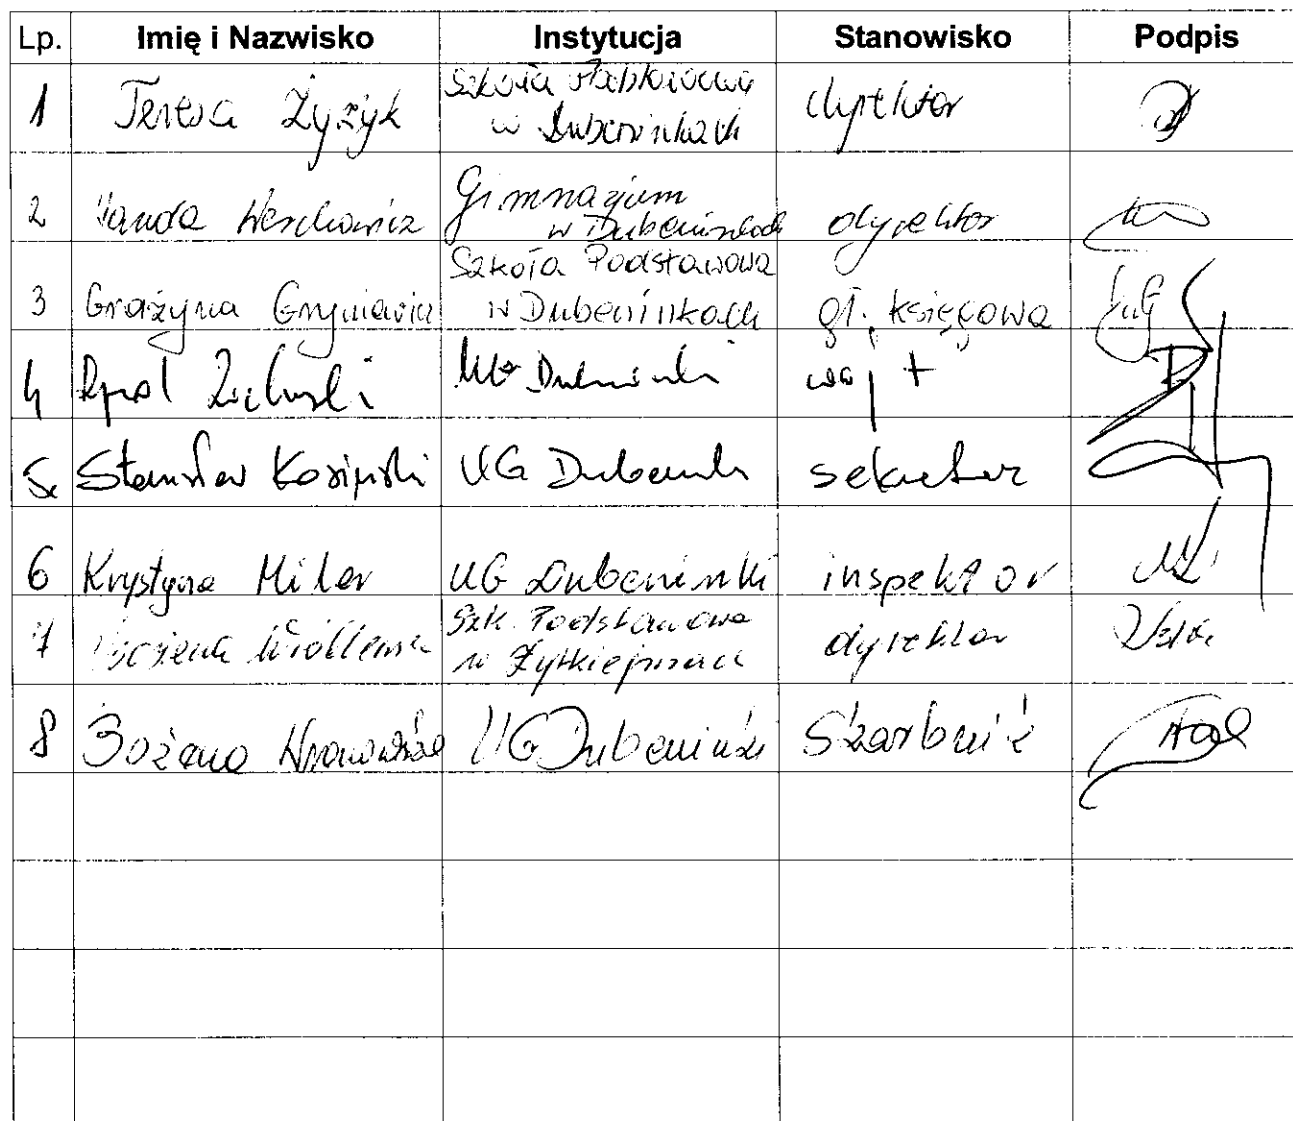 Lp. Imię i Nazwisko Instytucja Stanowisko Podpis
1 Teresa Żyżyk Szkoła Podstawowa
w Dubeninkach dyrektor
2 Wanda Gimnazjum
w Dubeninkach dyrektor
3 Grażyna Gryniewicz Szkoła Podstawowa
w Dubeninkach gł. księgowa
4 UG Dubeninki wójt
5. Stanisław Kosiński UG Dubeninki sekretarz
6 Krystyna Miler UG Dubeninki inspektor
7 Bożena Szk. Podstawowa
w Żytkiejmach dyrektor
8 Bożena UG Dubeninki Skarbnik